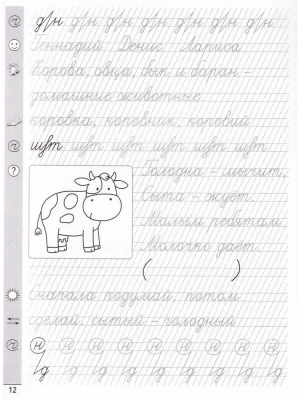 дгн дгн дгн дгн дгн дгн дгн
Геннадий Денис Лариса
Корова, овца, бык и баран –
домашние животные.
коровка, коровник, коровий
шут шут шут шут шут шут шут
Голодна – мычит,
Сыта – жуёт.
Малым ребятам
Молочко даёт.
( )
Сначала подумай, потом
сделай. сытый – голодный
н н н н н н н н н
12